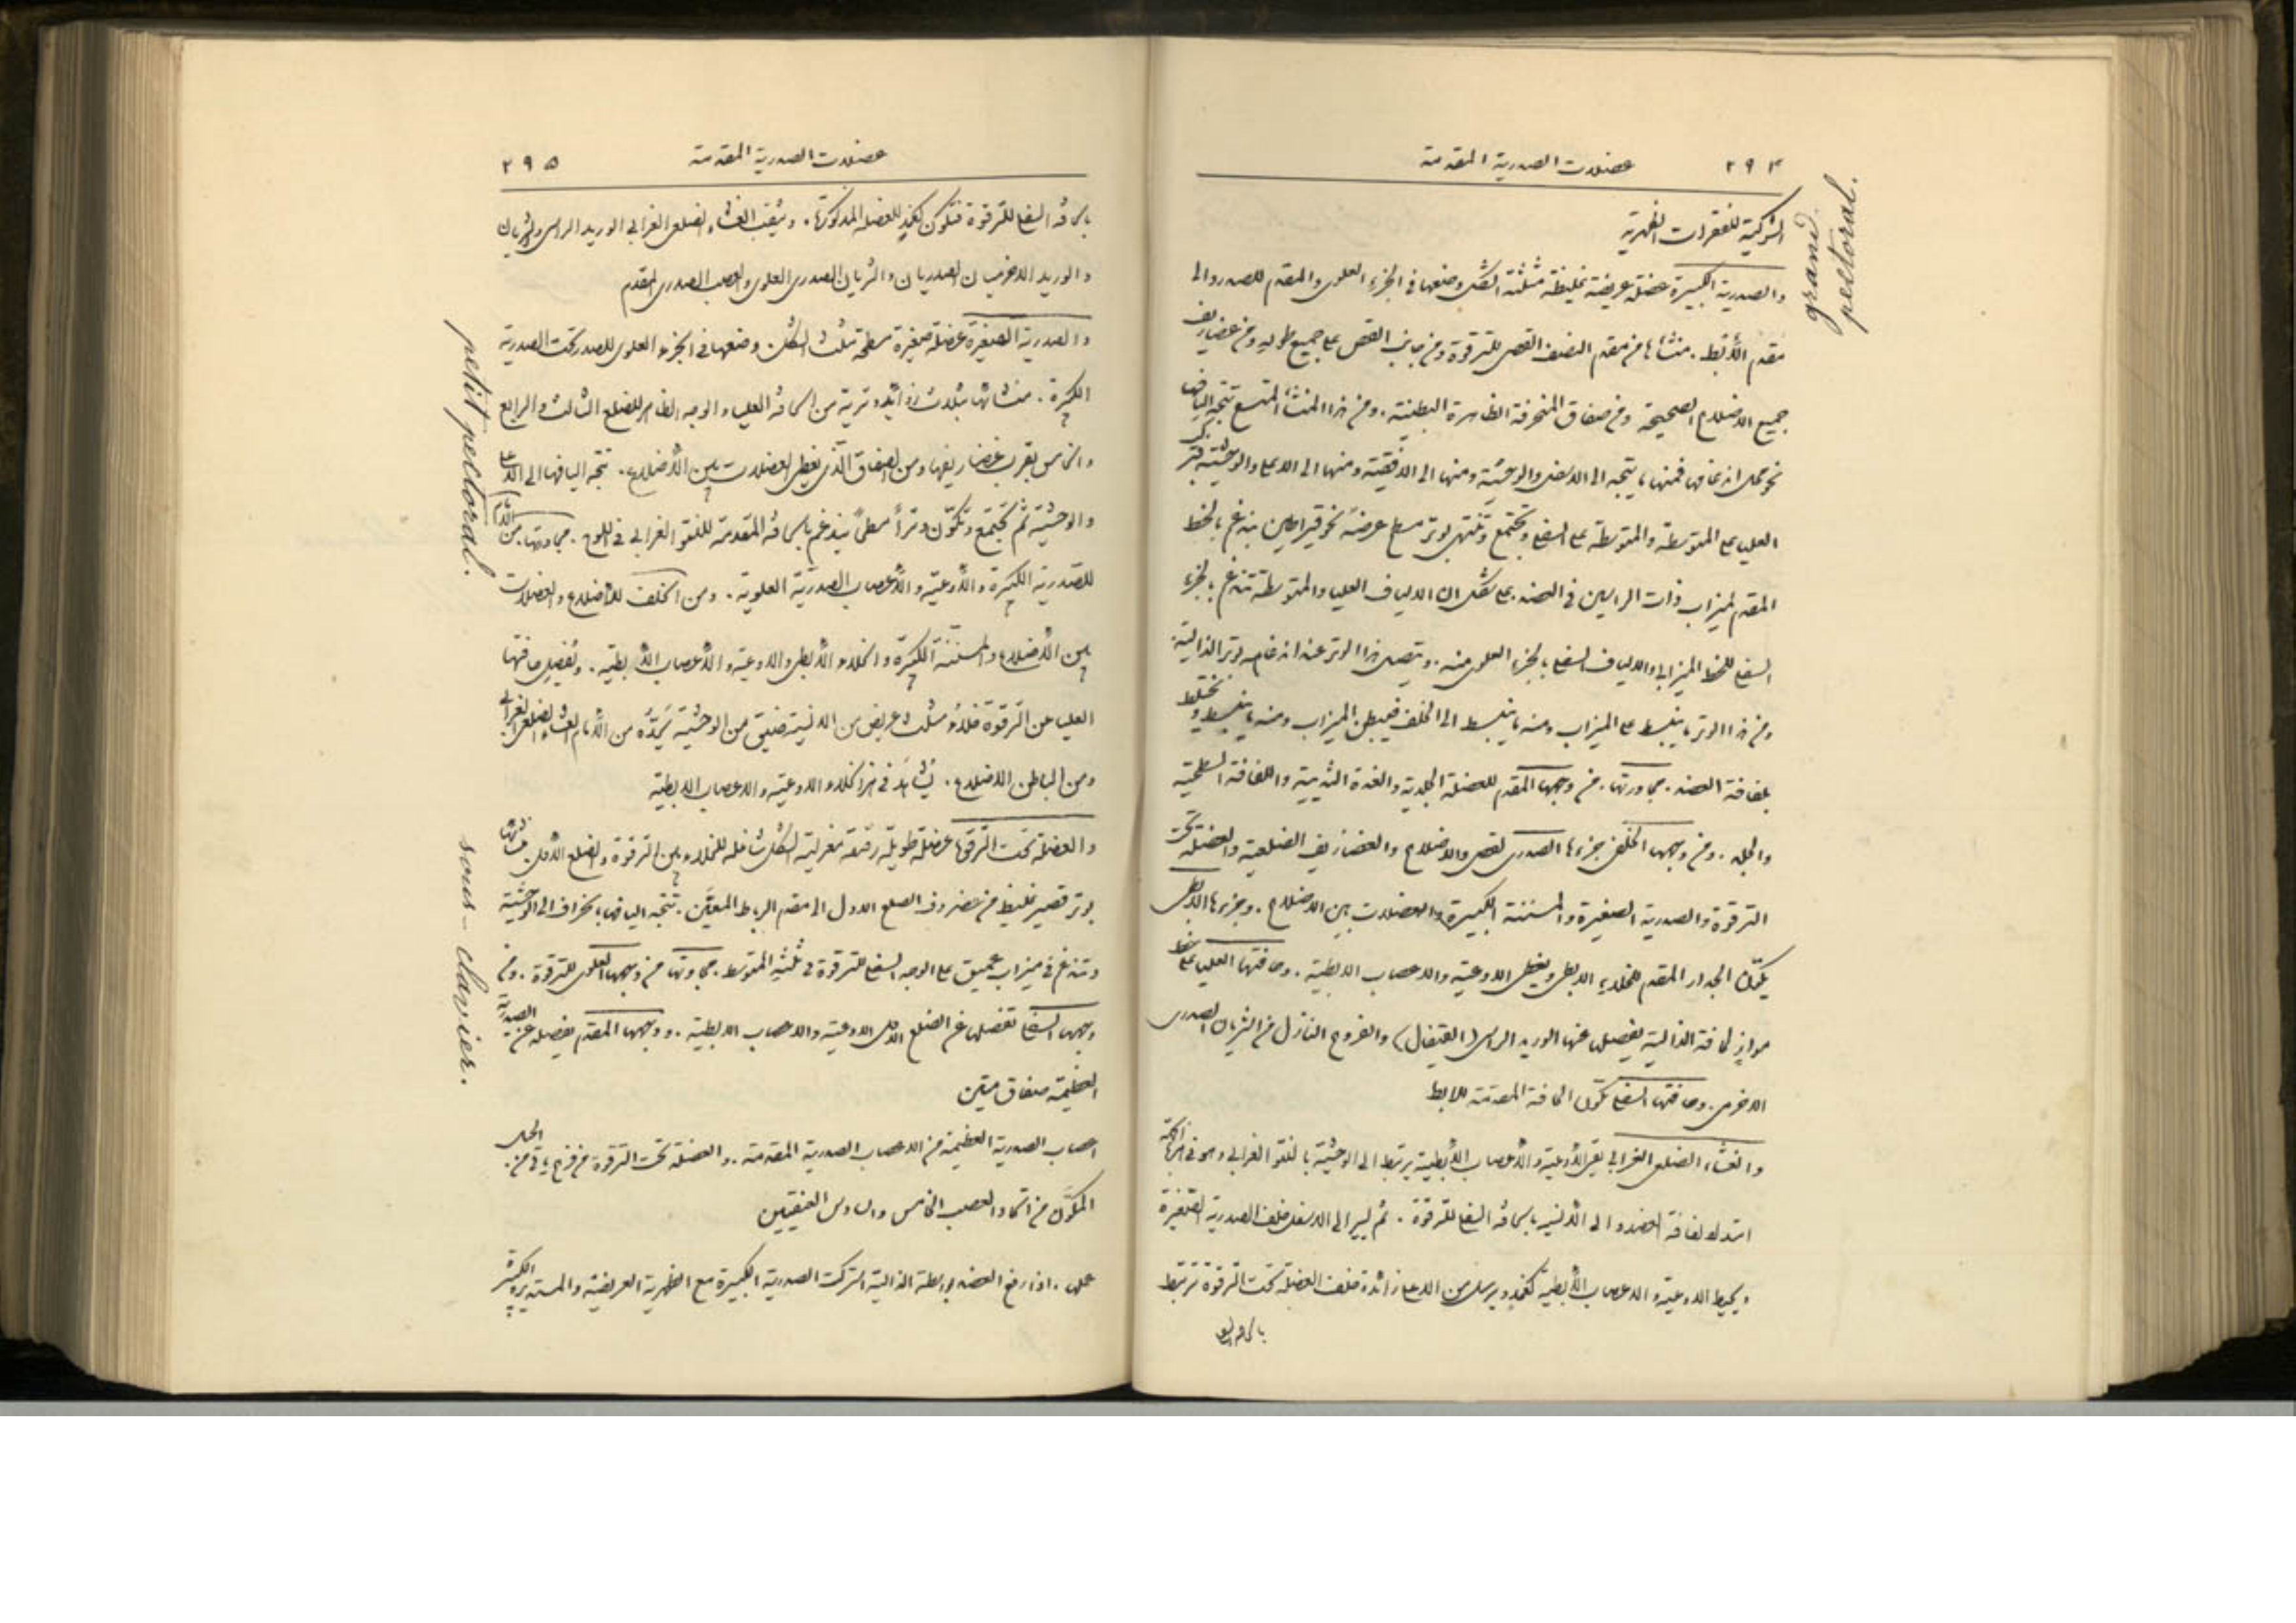 ٢٩٤ عضلات الصدرية المقدمة
الشوكية للفقرات الظهرية
grand pectoral.
والصدرية الكبيرة عضلة عريضة غليظة مثلثة الشكل وضعها في الجزء العلوي والمقدم للصدر والى
مقدم الأبط. منشأها من مقدم النصف القصي للترقوة ومن جانب القص على جميع طوله ومن غضاريف
جميع الاضلاع الصحيحة ومن صفاق المنحرفة الظاهرة البطنية. ومن هذا المنشأ المتسع تتجه اليافها
نحو محل اندغامها فمنها ما يتجه الى الاسفل والوحشية ومنها الى الافقية ومنها الى الاعلى والوحشية
العليا على المتوسطة والمتوسطة على السفلى وتجتمع وتنتهي بوتر مسطح عرضه نحو قيراطين يندغم بالخط
المقدم لميزاب ذات الرأسين في العضد. على شكل ان الالياف العليا والمتوسطة تندغم بالجزء
السفلي للخط الميزابي والالياف السفلى بالجزء العلوي منه. ويتصل هذا الوتر عند اندغامه بوتر الذالية
ومن هذا الوتر ما ينبسط على الميزاب ومنه ما ينبسط الى الخلف فيبطن الميزاب ومنه ما ينبسط ويختلط
بلفافة العضد. مجاورتها. من وجهها المقدم للعضلة الجلدية والغدة الثديية واللفافة السطحية
والجلد. ومن وجهها الخلفي جزءها الصدري للقص والاضلاع والغضاريف الضلعية والعضلة تحت
الترقوة والصدرية الصغيرة والمسننة الكبيرة والعضلات بين الاضلاع. وجزءها الابطي
يكوّن الجدار المقدم للخلاء الابطي ويغطي الاوعية والاعصاب الابطية. وحافتها العليا على خط
موازٍ لحافة الذالية يفصل عنها الوريد الراسي (القيفال) والفروع النازل من الشريان الصدري
الاخرمي. وحافتها السفلى تكوّن الحافة المقدمة للابط
والغشاء الضلعي الغرابي يقي الأوعية والأعصاب الأبطية يرتبط الى الوحشية بالنتو الغرابي وهو في
امتداد لفافة العضد والى الأنسية بالحافة السفلى للترقوة. ثم يسير الى الاسفل خلف الصدرية الصغيرة
ويحيط الاوعية والاعصاب الأبطية كغمد ويرسل من الاعلى زائدة خلف العضلة تحت الترقوة ترتبط
بالحافة السفلى
٢٩٥ عضلات الصدرية المقدمة
بالحافة السفلى للترقوة فتكون كغمد للعضلة المذكورة. ويثقب الغشاء الضلعي الغرابي الوريد الراسي والشريان
والوريد الاخرميان الصدريان والشريان الصدري العلوي والعصب الصدري المقدم
petit pectoral.
والصدرية الصغيرة عضلة صغيرة مسطحة مثلثة الشكل وضعها في الجزء العلوي للصدر تحت الصدرية
الكبيرة. منشأها بثلاث زوائد وترية من الحافة العليا والوجه الظاهر للضلع الثالث والرابع
والخامس بقرب غضاريفها ومن الصفاق الذي يغطي العضلات بين الأضلاع. تتجه اليافها الى الاعلى
والوحشية ثم تجتمع وتكوّن وتراً مسطحاً يندغم بالحافة المقدمة للنتو الغرابي في اللوح. مجاورتها. من الأمام
للصدرية الكبيرة والأوعية والأعصاب الصدرية العلوية. ومن الخلف للأضلاع والعضلات
بين الأضلاع والمسننة الكبيرة والخلاء الأبطي والاوعية والأعصاب الأبطية. وتفصل حافتها
العليا عن الترقوة خلاء مثلث عريض من الانسية ضيق من الوحشية يحدّه من الأمام الغشاء الضلعي الغرابي
ومن الباطن الاضلاع. يشاهد في هذا الخلاء الاوعية والاعصاب الابطية
sous-clavier.
والعضلة تحت الترقوة عضلة طويلة رقيقة مغزلية الشكل شاغلة للخلاء بين الترقوة والضلع الأول. منشأها
بوتر قصير غليظ من غضروف الضلع الاول الى مقدم الرباط المعيّن. تتجه اليافها بانحراف الى الوحشية
وتندغم في ميزاب عميق على الوجه السفلي للترقوة في ثلثه المتوسط. مجاورتها من وجهها العلوي للترقوة. ومن
وجهها السفلي تفصل عن الضلع الأول الاوعية والاعصاب الابطية. ووجهها المقدم يفصله عن الصدرية
العظيمة صفاق متين
اعصاب الصدرية العظيمة من الاعصاب الصدرية المقدمة. والعضلة تحت الترقوة من فرع ياتي من الحبل
المكوّن من اتحاد العصب الخامس والسادس العنقيين
عمل. اذا رفع العضد بواسطة الذالية اشتركت الصدرية الكبيرة مع الظهرية العريضة والمستديرة الكبيرة